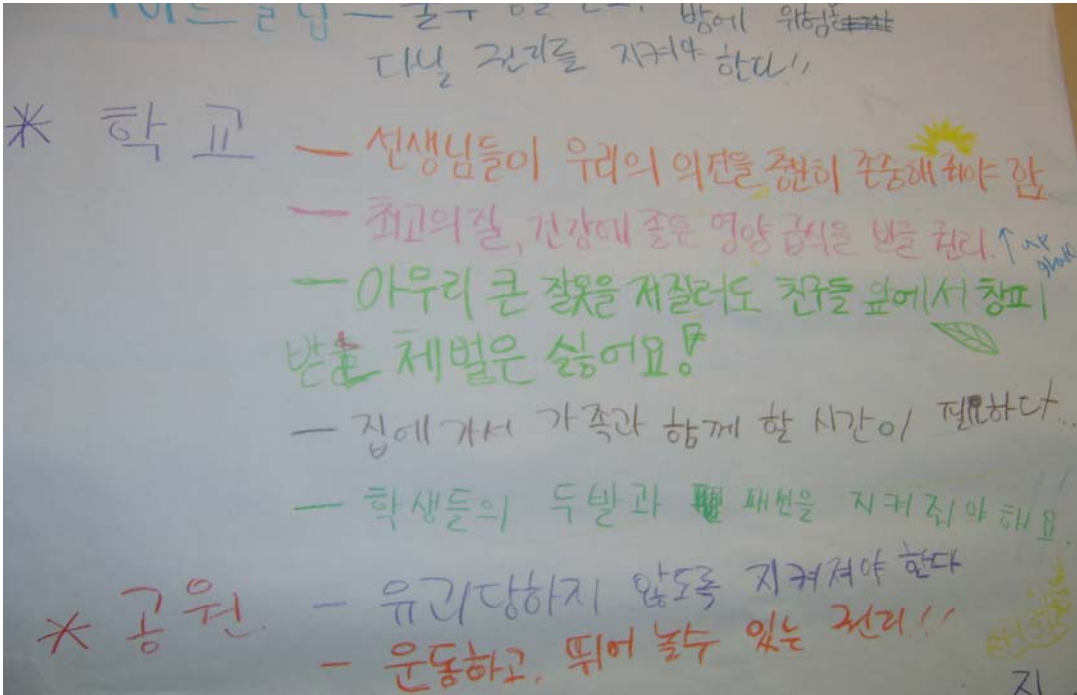 밤에 위험
다닐 권리를 지켜야 한다!!
* 학교 — 선생님들이 우리의 의견을 충분히 존중해줘야 함
— 최고의 질, 건강에 좋은 영양 급식을 받을 권리. ↑ up grade
— 아무리 큰 잘못을 저질러도 친구들 앞에서 창피
받는 체벌은 싫어요!
— 집에 가서 가족과 함께 할 시간이 필요하다...
— 학생들의 두발과 패션을 지켜줘야 해요.
* 공원. — 유괴당하지 않도록 지켜져야 한다
— 운동하고, 뛰어 놀수 있는 권리!!